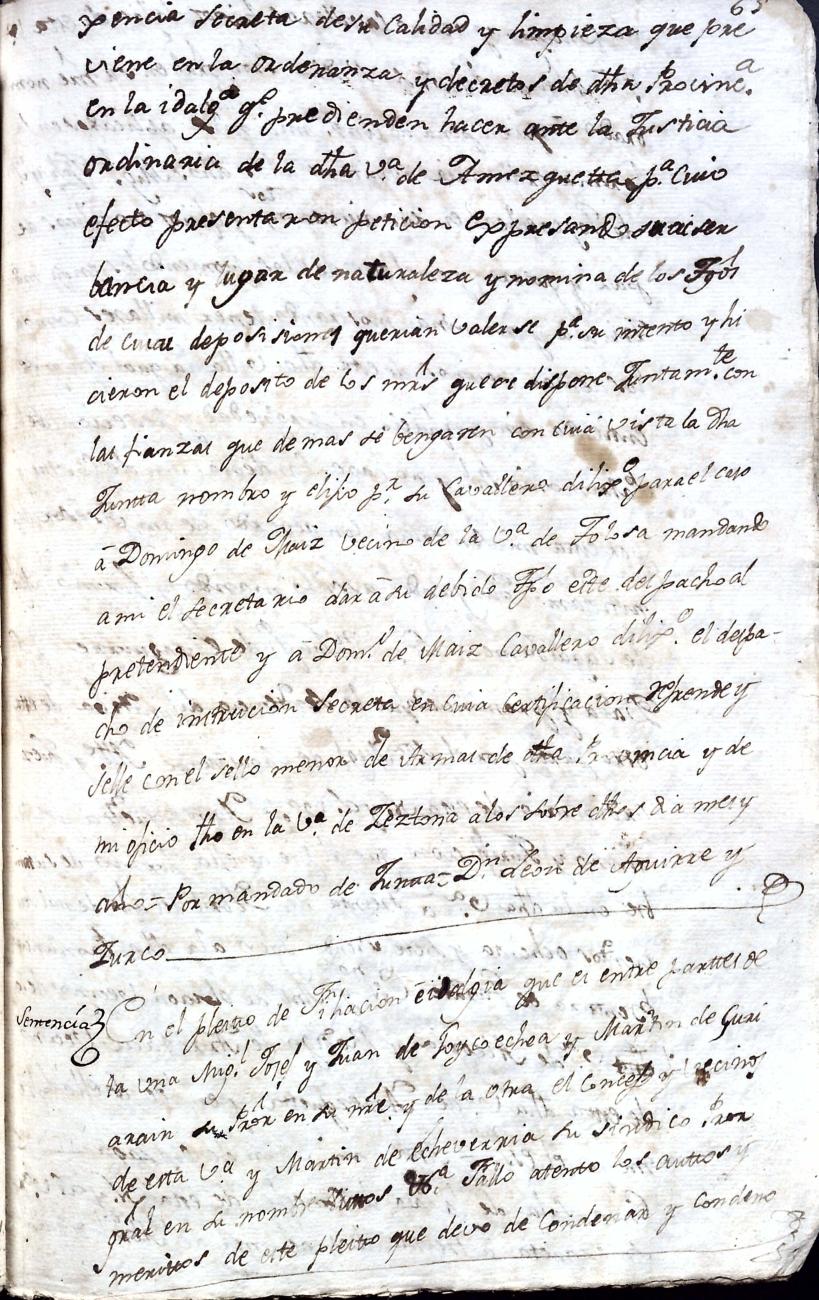 65
xpencia secreta desu Calidad y limpieza que pre
viene en la ordenanza y decretos de dha Provinca.
en la idalga qe. predienden hacer ante la Justicia
ordinaria de la dha va. de Amezguetta pa. Cuio
efecto presentaron peticion expresando su
bancia y lugar de naturaleza y nomina de los
de cuias deposisiones querian valerse pa. su intento y hi
cieron el deposito de los mrs que se dispone Juntamte. con
las fianzas que demas se bengaren con cuia vista la dha
Juntta nombro y elijio pr. su Cavallero dilixo. para el caso
â Domingo de Maiz vecino de la va. de Tolosa mandando
a mi el secretario dar â su debido tpo este despacho al
pretendiente y â Domo. de Maiz Cavallero dilixo. el despa-
cho de instrucion secreta en cuia certificacion refrende y
selle con el sello menor de Armas de dha Provincia y de
mi oficio fho en la va. de Zeztona a los sobre dhos dia mes y
año = Por mandado de Juntta = Dn. Leon de Aguirre y
Turco
Sentencía En el pleito de Filiacion é idalgia que es entre parttes de
la una Migl. Josef y Juan de Goycoechea y Martin de Guri
arain su Pror en su nre. y de la otra el Concejo y vecinos
de esta va. y Martin de Echeverria su sindico Pror
gral en su nombre Fallo atento los auttos y
merittos de este pleito que devo de Condenar y condeno